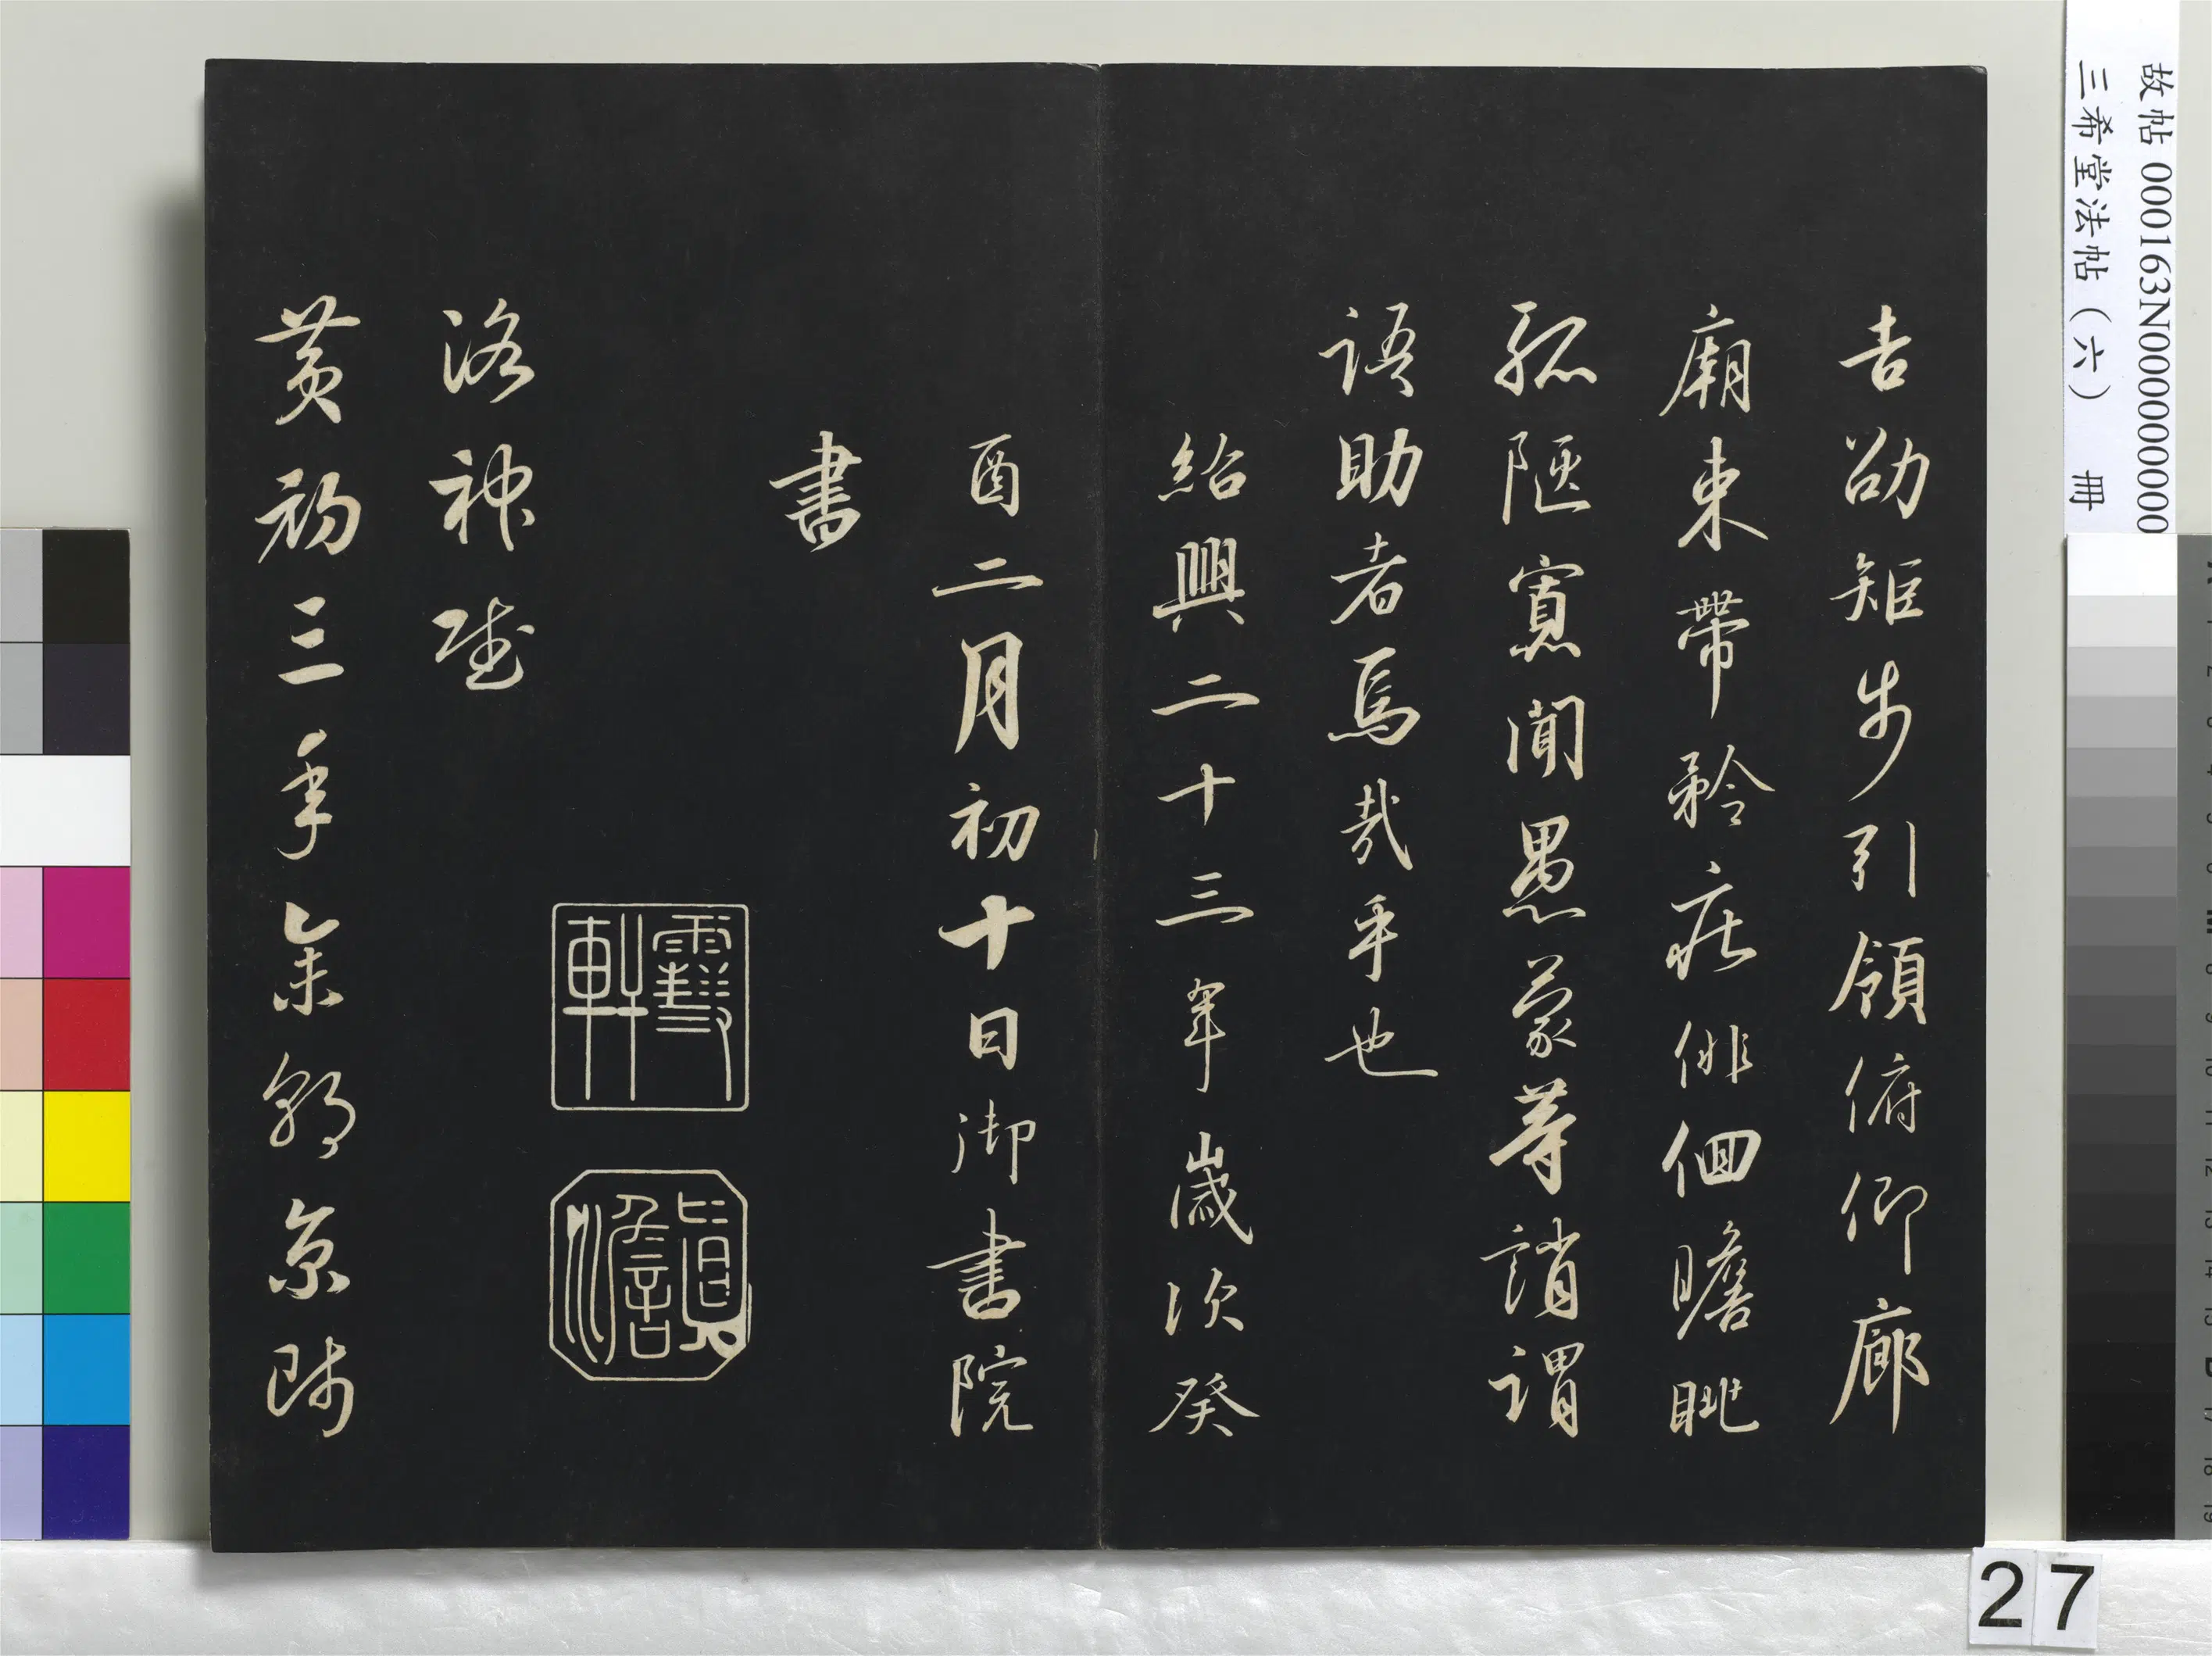 吉劭矩步引領俯仰廊
廟束帶矜莊俳佪瞻眺
孤陋寡聞愚蒙等誚謂
語助者焉哉乎也
紹興二十三年歲次癸
酉二月初十日御書院
書
洛神賦
黃初三年余朝京師
故帖 000163N000000000
三希堂法帖（六） 冊
27